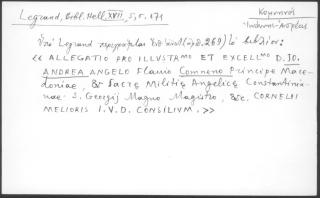 Legrand, Bibl. Hell. XVII, 5, σ. 171
Κομνηνοί
Ἰωάννης-Ἀνδρέας
Ὑπὸ Legrand περιγράφεται (σ. 269) τὸ βιβλίον:
« ALLEGATIO PRO ILLUSTRᴹᴼ ET EXCELLᴹᴼ D. IO.
ANDREA ANGELO Flavio Comneno Principe Mace-
doniae, & Sacrę Militię Angelicę Constantinia-
nae S. Georgij Magno Magistro, &c. CORNELII
MELIORIS I.V.D. CONSILIVM. »